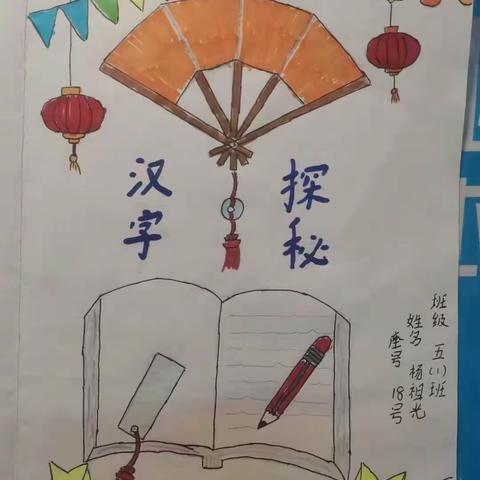 汉字
探秘
班级 五(1)班
姓名 杨祖光
座号 18号